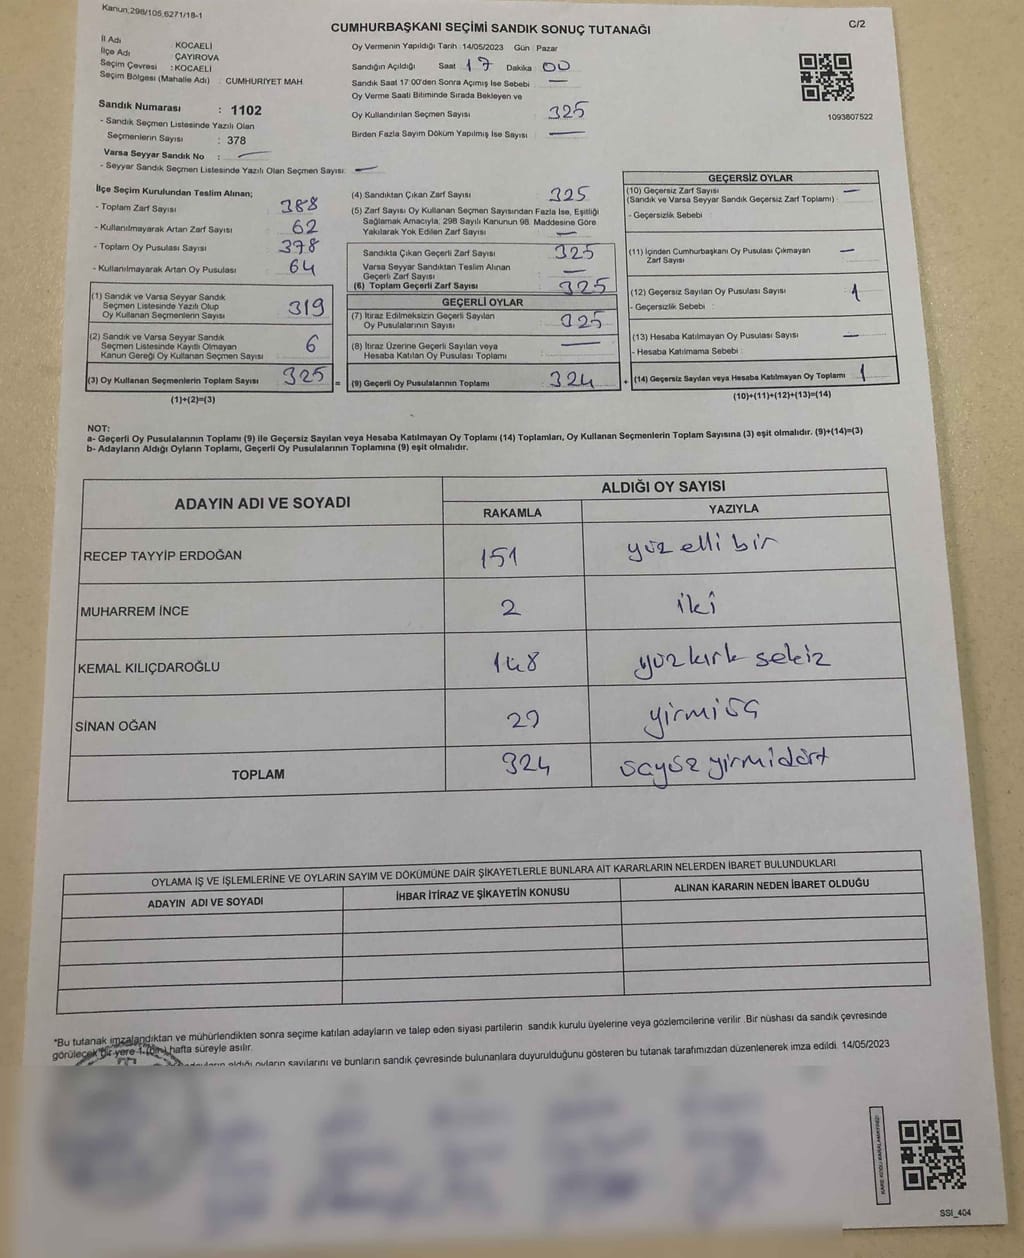 Kanun,298/105,6271/18-1
CUMHURBAŞKANI SEÇİMİ SANDIK SONUÇ TUTANAĞI
C/2
İl Adı : KOCAELİ
İlçe Adı : ÇAYIROVA
Seçim Çevresi : KOCAELİ
Seçim Bölgesi (Mahalle Adı) : CUMHURIYET MAH.
Oy Vermenin Yapıldığı Tarih : 14/05/2023 Gün : Pazar
Sandığın Açıldığı Saat 17 Dakika 00
Sandık Saat 17:00'den Sonra Açımış İse Sebebi —
Oy Verme Saati Bitiminde Sırada Bekleyen ve
Oy Kullandırılan Seçmen Sayısı 325
Birden Fazla Sayım Döküm Yapılmış İse Sayısı —
1093807522
Sandık Numarası : 1102
- Sandık Seçmen Listesinde Yazılı Olan
Seçmenlerin Sayısı : 378
Varsa Seyyar Sandık No : —
- Seyyar Sandık Seçmen Listesinde Yazılı Olan Seçmen Sayısı: —
İlçe Seçim Kurulundan Teslim Alınan;
- Toplam Zarf Sayısı 388
- Kullanılmayarak Artan Zarf Sayısı 62
- Toplam Oy Pusulası Sayısı 378
- Kullanılmayarak Artan Oy Pusulası 64
(1) Sandık ve Varsa Seyyar Sandık
Seçmen Listesinde Yazılı Olup
Oy Kullanan Seçmenlerin Sayısı 319
(2) Sandık ve Varsa Seyyar Sandık
Seçmen Listesinde Kayıtlı Olmayan
Kanun Gereği Oy Kullanan Seçmen Sayısı 6
(3) Oy Kullanan Seçmenlerin Toplam Sayısı 325 =
(1)+(2)=(3)
(4) Sandıktan Çıkan Zarf Sayısı 325
(5) Zarf Sayısı Oy Kullanan Seçmen Sayısından Fazla İse, Eşitliği
Sağlamak Amacıyla, 298 Sayılı Kanunun 98. Maddesine Göre
Yakılarak Yok Edilen Zarf Sayısı —
Sandıkta Çıkan Geçerli Zarf Sayısı 325
Varsa Seyyar Sandıktan Teslim Alınan
Geçerli Zarf Sayısı —
(6) Toplam Geçerli Zarf Sayısı 325
GEÇERLİ OYLAR
(7) İtiraz Edilmeksizin Geçerli Sayılan
Oy Pusulalarının Sayısı 325
(8) İtiraz Üzerine Geçerli Sayılan veya
Hesaba Katılan Oy Pusulası Toplamı —
(9) Geçerli Oy Pusulalarının Toplamı 324 +
GEÇERSİZ OYLAR
(10) Geçersiz Zarf Sayısı —
(Sandık ve Varsa Seyyar Sandık Geçersiz Zarf Toplamı) :
- Geçersizlik Sebebi
(11) İçinden Cumhurbaşkanı Oy Pusulası Çıkmayan —
Zarf Sayısı
(12) Geçersiz Sayılan Oy Pusulası Sayısı 1
- Geçersizlik Sebebi :
(13) Hesaba Katılmayan Oy Pusulası Sayısı —
- Hesaba Katılmama Sebebi
(14) Geçersiz Sayılan veya Hesaba Katılmayan Oy Toplamı 1
(10)+(11)+(12)+(13)=(14)
NOT:
a- Geçerli Oy Pusulalarının Toplamı (9) ile Geçersiz Sayılan veya Hesaba Katılmayan Oy Toplamı (14) Toplamları, Oy Kullanan Seçmenlerin Toplam Sayısına (3) eşit olmalıdır. (9)+(14)=(3)
b- Adayların Aldığı Oyların Toplamı, Geçerli Oy Pusulalarının Toplamına (9) eşit olmalıdır.
ADAYIN ADI VE SOYADI
ALDIĞI OY SAYISI
RAKAMLA YAZIYLA
RECEP TAYYİP ERDOĞAN 151 yüz elli bir
MUHARREM İNCE 2 iki
KEMAL KILIÇDAROĞLU 148 yüz kırk sekiz
SİNAN OĞAN 23 yirmi üç
TOPLAM 324 üçyüz yirmi dört
OYLAMA İŞ VE İŞLEMLERİNE VE OYLARIN SAYIM VE DÖKÜMÜNE DAİR ŞİKAYETLERLE BUNLARA AİT KARARLARIN NELERDEN İBARET BULUNDUKLARI
ADAYIN ADI VE SOYADI İHBAR İTİRAZ VE ŞİKAYETİN KONUSU ALINAN KARARIN NEDEN İBARET OLDUĞU
*Bu tutanak imzalandıktan ve mühürlendikten sonra seçime katılan adayların ve talep eden siyasi partilerin sandık kurulu üyelerine veya gözlemcilerine verilir. Bir nüshası da sandık çevresinde
görülecek bir yere 1 (bir) hafta süreyle asılır.
aldığı oyların sayılarını ve bunların sandık çevresinde bulunanlara duyurulduğunu gösteren bu tutanak tarafımızdan düzenlenerek imza edildi. 14/05/2023
KARE KODU KARALAMAYINIZ!
SSI_404